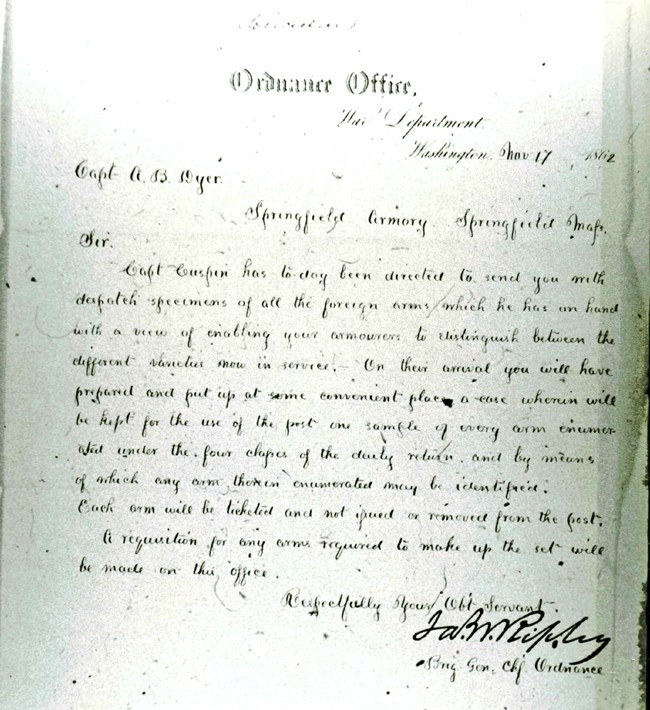 Ordnance Office,
War Department
Washington, Nov 17 1862
Capt A. B. Dyer.
Springfield Armory Springfield Mass.
Sir.
Capt Cuspin has to-day been directed to send you with
dispatch specimens of all the foreign arms which he has on hand
with a view of enabling your armourers to distinguish between the
different varieties now in service. - On their arrival you will have
prepared and put up at some convenient place a case wherein will
be kept for the use of the post one sample of every arm enumer-
ated under the four classes of the daily return and by means
of which any arm therein enumerated may be identified.
Each arm will be ticketed and not issued or removed from the post.
A requisition for any arms required to make up the set will
be made on this office.
Respectfully Your Obt Servant.
Jas. W. Ripley
Brig. Gen. Chf. Ordnance